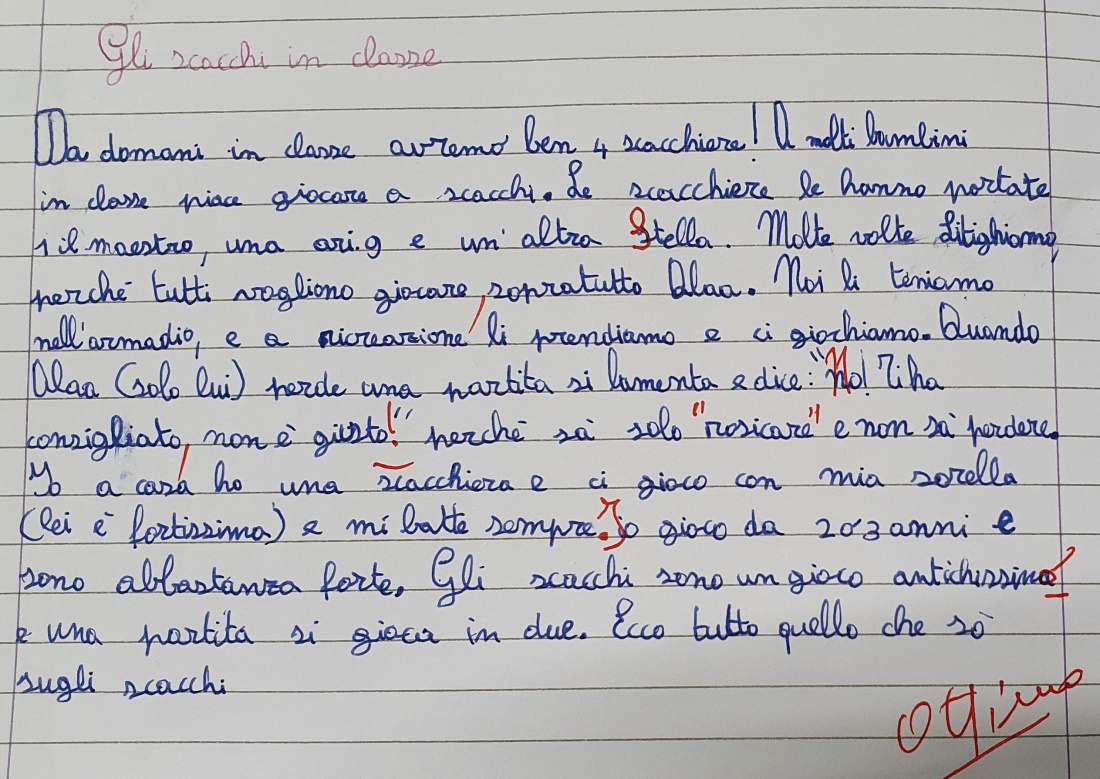 Gli scacchi in classe
Da domani in classe avremo ben 4 scacchiere! A molti bambini
in classe piace giocare a scacchi. Le scacchiere le hanno portate
1 il maestro, una ari.g e un' altra Stella. Molte volte litighiamo,
perché tutti vogliono giocare, sopratutto Alaa. Noi li teniamo
nell'armadio, e a ricreazione li prendiamo e ci giochiamo. Quando
Alaa (solo lui) perde una partita si lamenta e dice: "No! Ti ha
consigliato, non è giusto!" perché sà solo "rosicare" e non sà perdere.
Io a casa ho una scacchiera e ci gioco con mia sorella
(lei è fortissima) e mi batte sempre. Io gioco da 2 o 3 anni e
sono abbastanza forte. Gli scacchi sono un gioco antichissimo
e una partita si gioca in due. Ecco tutto quello che sò
sugli scacchi
Ottimo